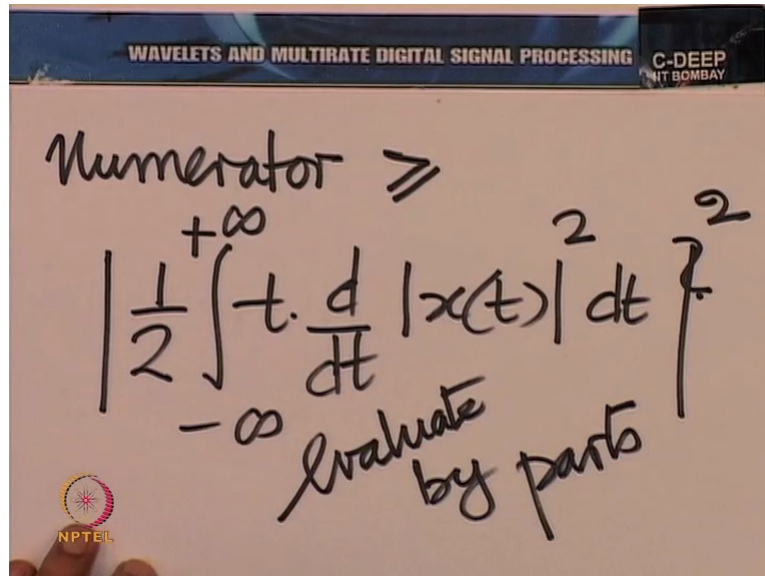 WAVELETS AND MULTIRATE DIGITAL SIGNAL PROCESSING
C-DEEP
IIT BOMBAY
Numerator ≥
| 1/2 ∫_{-∞}^{+∞} t. d/dt |x(t)|^2 dt |^2
evaluate
by parts
NPTEL